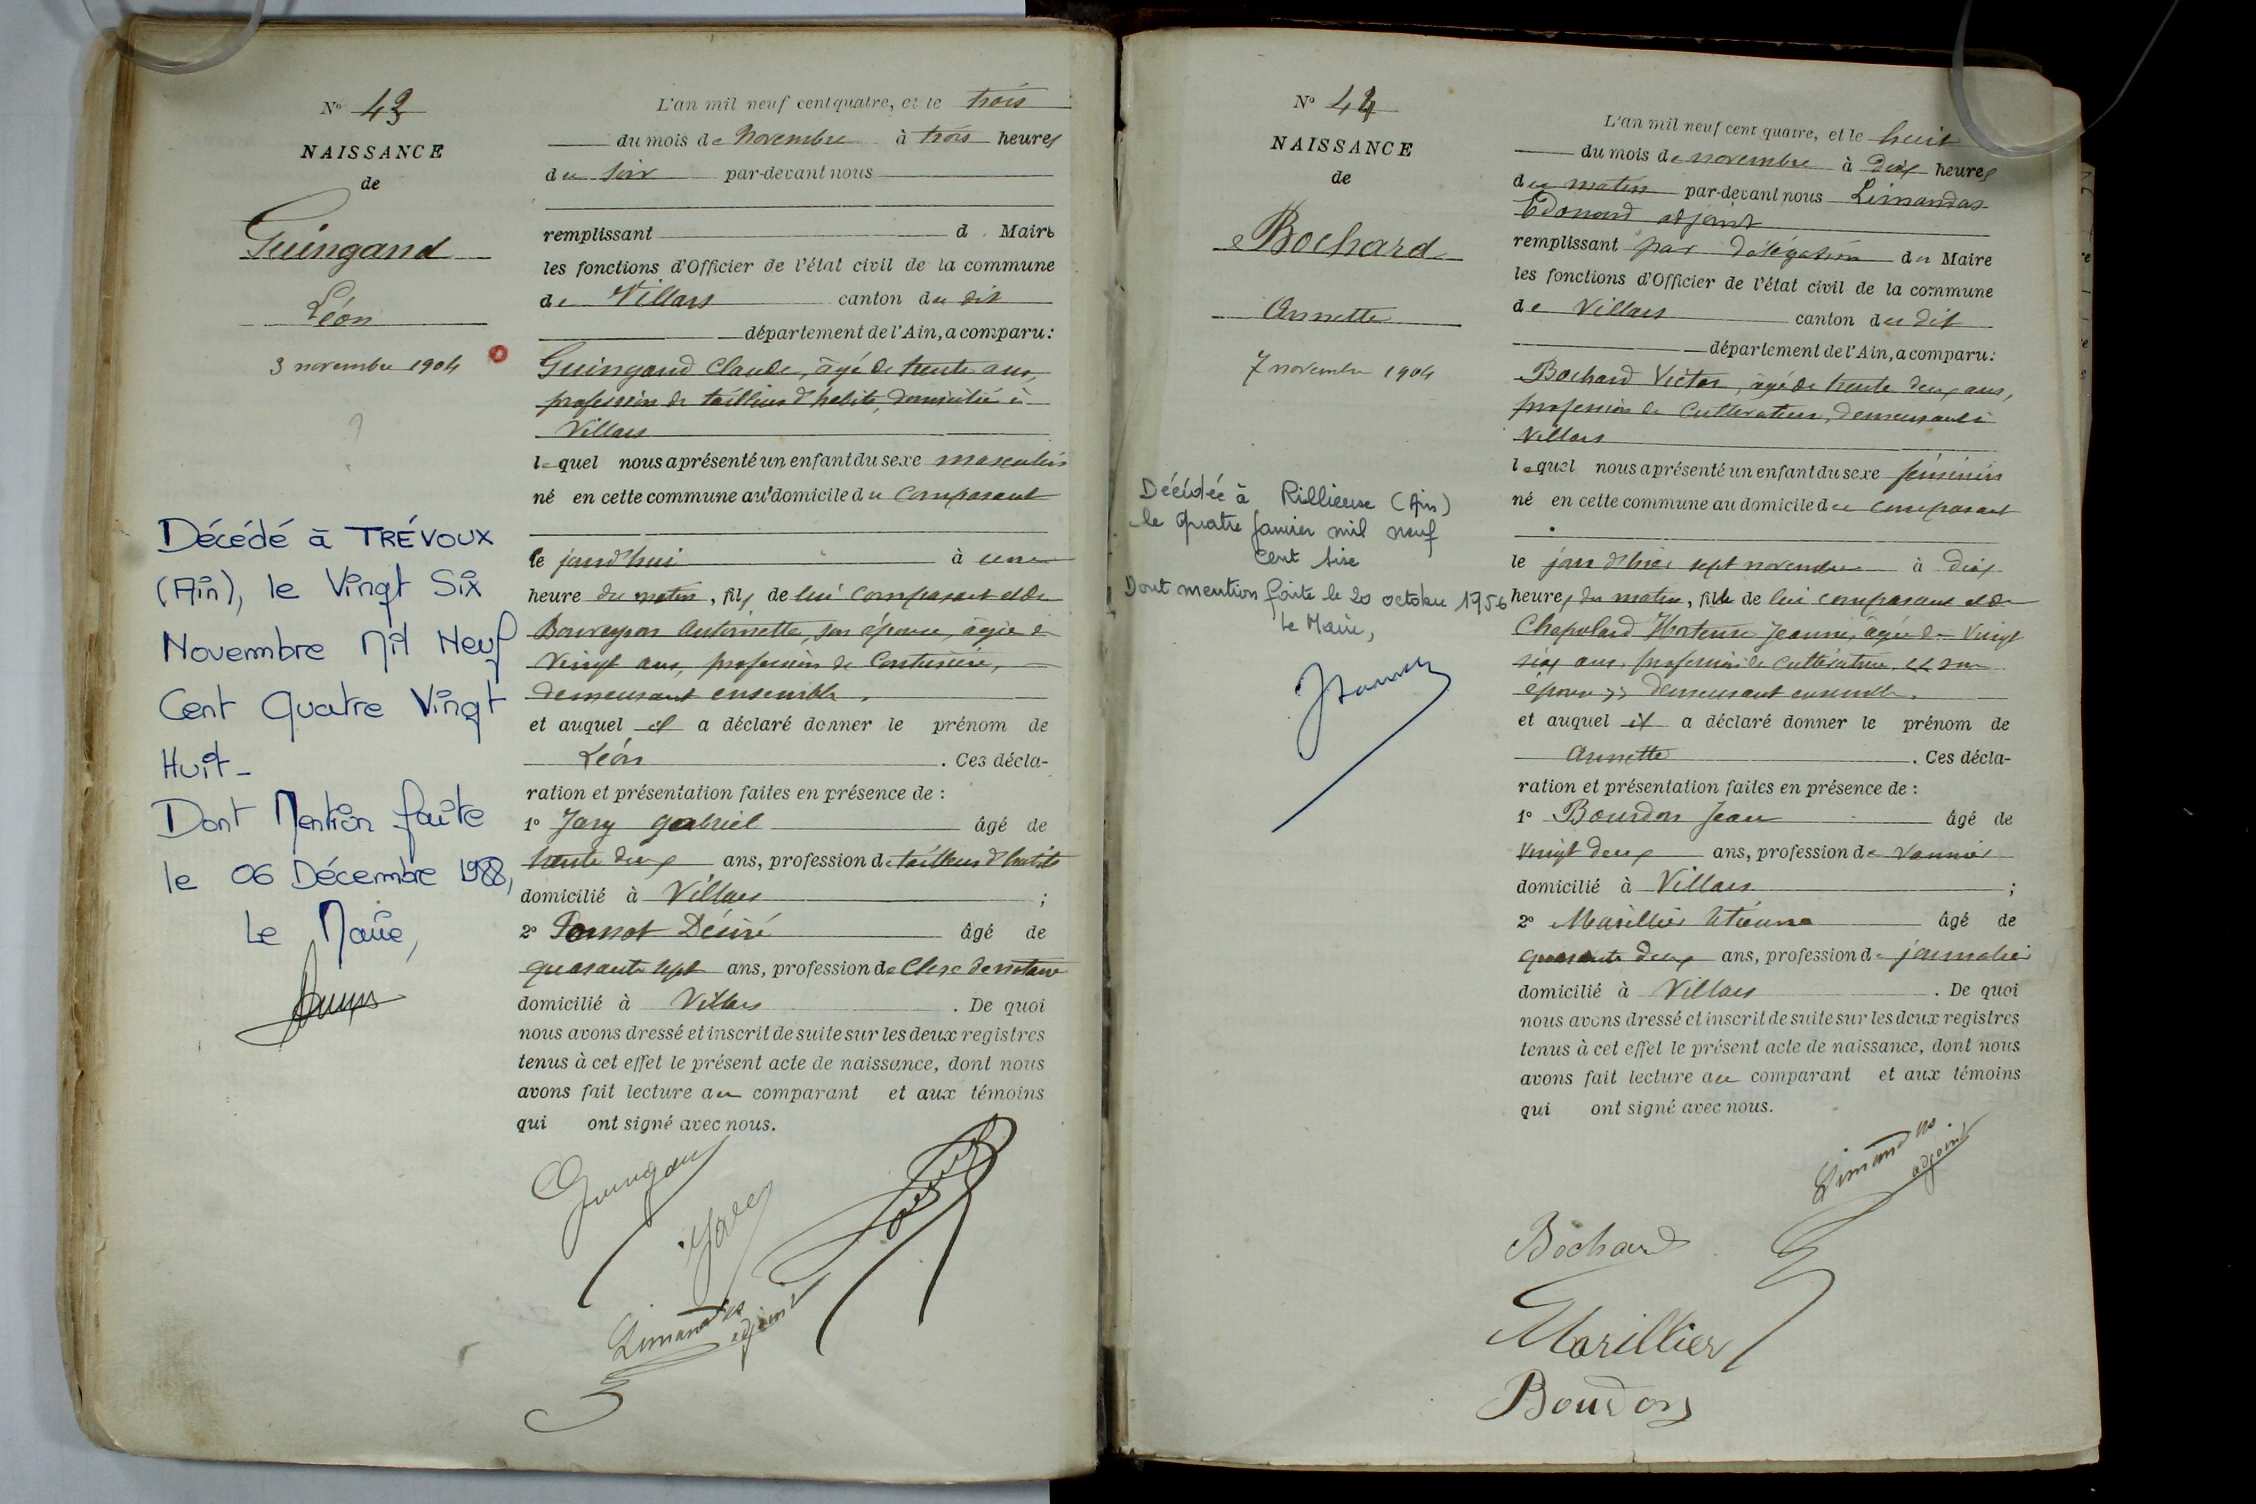 N° 43
NAISSANCE
de
Guingand
Léon
3 novembre 1904
Décédé à TRÉVOUX
(Ain), le Vingt Six
Novembre Mil Neuf
Cent Quatre Vingt
Huit-
Dont Mention faite
le 06 Décembre 1988,
Le Maire,
L'an mil neuf cent quatre, et le trois
du mois de Novembre à trois heures
du soir par-devant nous
remplissant d Maire
les fonctions d'Officier de l'état civil de la commune
de Villars canton du dit
département de l'Ain, a comparu:
Guingand Claude, âgé de trente ans,
profession de tailleur d'habits, domicilié à
Villars
lequel nous a présenté un enfant du sexe masculin
né en cette commune au domicile du comparant
le jourd'hui à une
heure du matin, fils de lui comparant et de
Antoinette, son épouse, âgée de
vingt ans, profession de couturière,
demeurant ensemble.
et auquel il a déclaré donner le prénom de
Léon. Ces décla-
ration et présentation faites en présence de :
1° Jary Gabriel âgé de
trente deux ans, profession de tailleur d'habits
domicilié à Villars ;
2° Désiré âgé de
quarante sept ans, profession de Clerc de notaire
domicilié à Villars. De quoi
nous avons dressé et inscrit de suite sur les deux registres
tenus à cet effet le présent acte de naissance, dont nous
avons fait lecture au comparant et aux témoins
qui ont signé avec nous.
Guingand
Jary
Limandas
adjoint
N° 44
NAISSANCE
de
Bochard
Annette
7 novembre 1904
Décédée à Rillieux (Ain)
le quatre janvier mil neuf
cent six
Dont mention faite le 20 octobre 1956
Le Maire,
L'an mil neuf cent quatre, et le huit
du mois de novembre à dix heures
du matin par-devant nous Limandas
Edouard adjoint
remplissant par délégation du Maire
les fonctions d'Officier de l'état civil de la commune
de Villars canton du dit
département de l'Ain, a comparu:
Bochard Victor, âgé de trente deux ans,
profession de cultivateur, demeurant à
Villars
lequel nous a présenté un enfant du sexe féminin
né en cette commune au domicile du comparant
le jour d'hier sept novembre à dix
heures du matin, fille de lui comparant et de
Chapolard Hortense Jeanne, âgée de vingt
six ans, profession de cultivatrice,
épouse, demeurant ensemble.
et auquel il a déclaré donner le prénom de
Annette. Ces décla-
ration et présentation faites en présence de :
1° Bourdon Jean âgé de
vingt deux ans, profession de vannier
domicilié à Villars ;
2° Marillier Etienne âgé de
quarante deux ans, profession de journalier
domicilié à Villars. De quoi
nous avons dressé et inscrit de suite sur les deux registres
tenus à cet effet le présent acte de naissance, dont nous
avons fait lecture au comparant et aux témoins
qui ont signé avec nous.
Limandas
adjoint
Bochard
Marillier
Bourdon